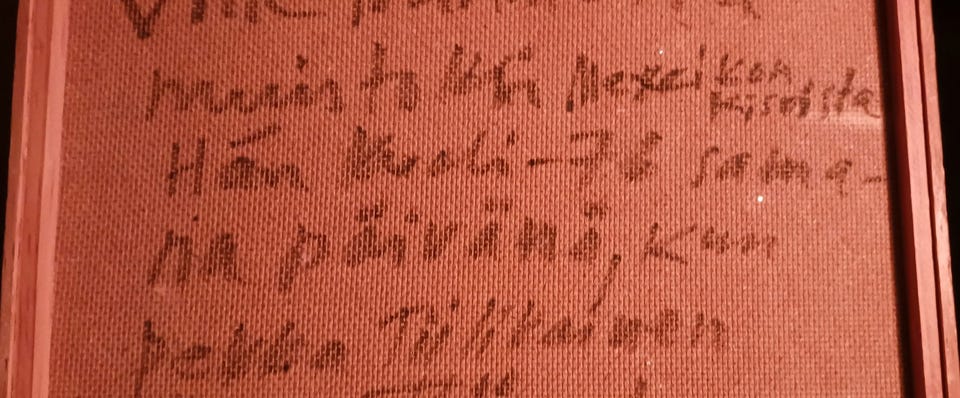 Ville
muistoksi Mexeikon kisoista
Hän kuoli -76 sama-
na päivänä, kun
pekka Tiilikainen